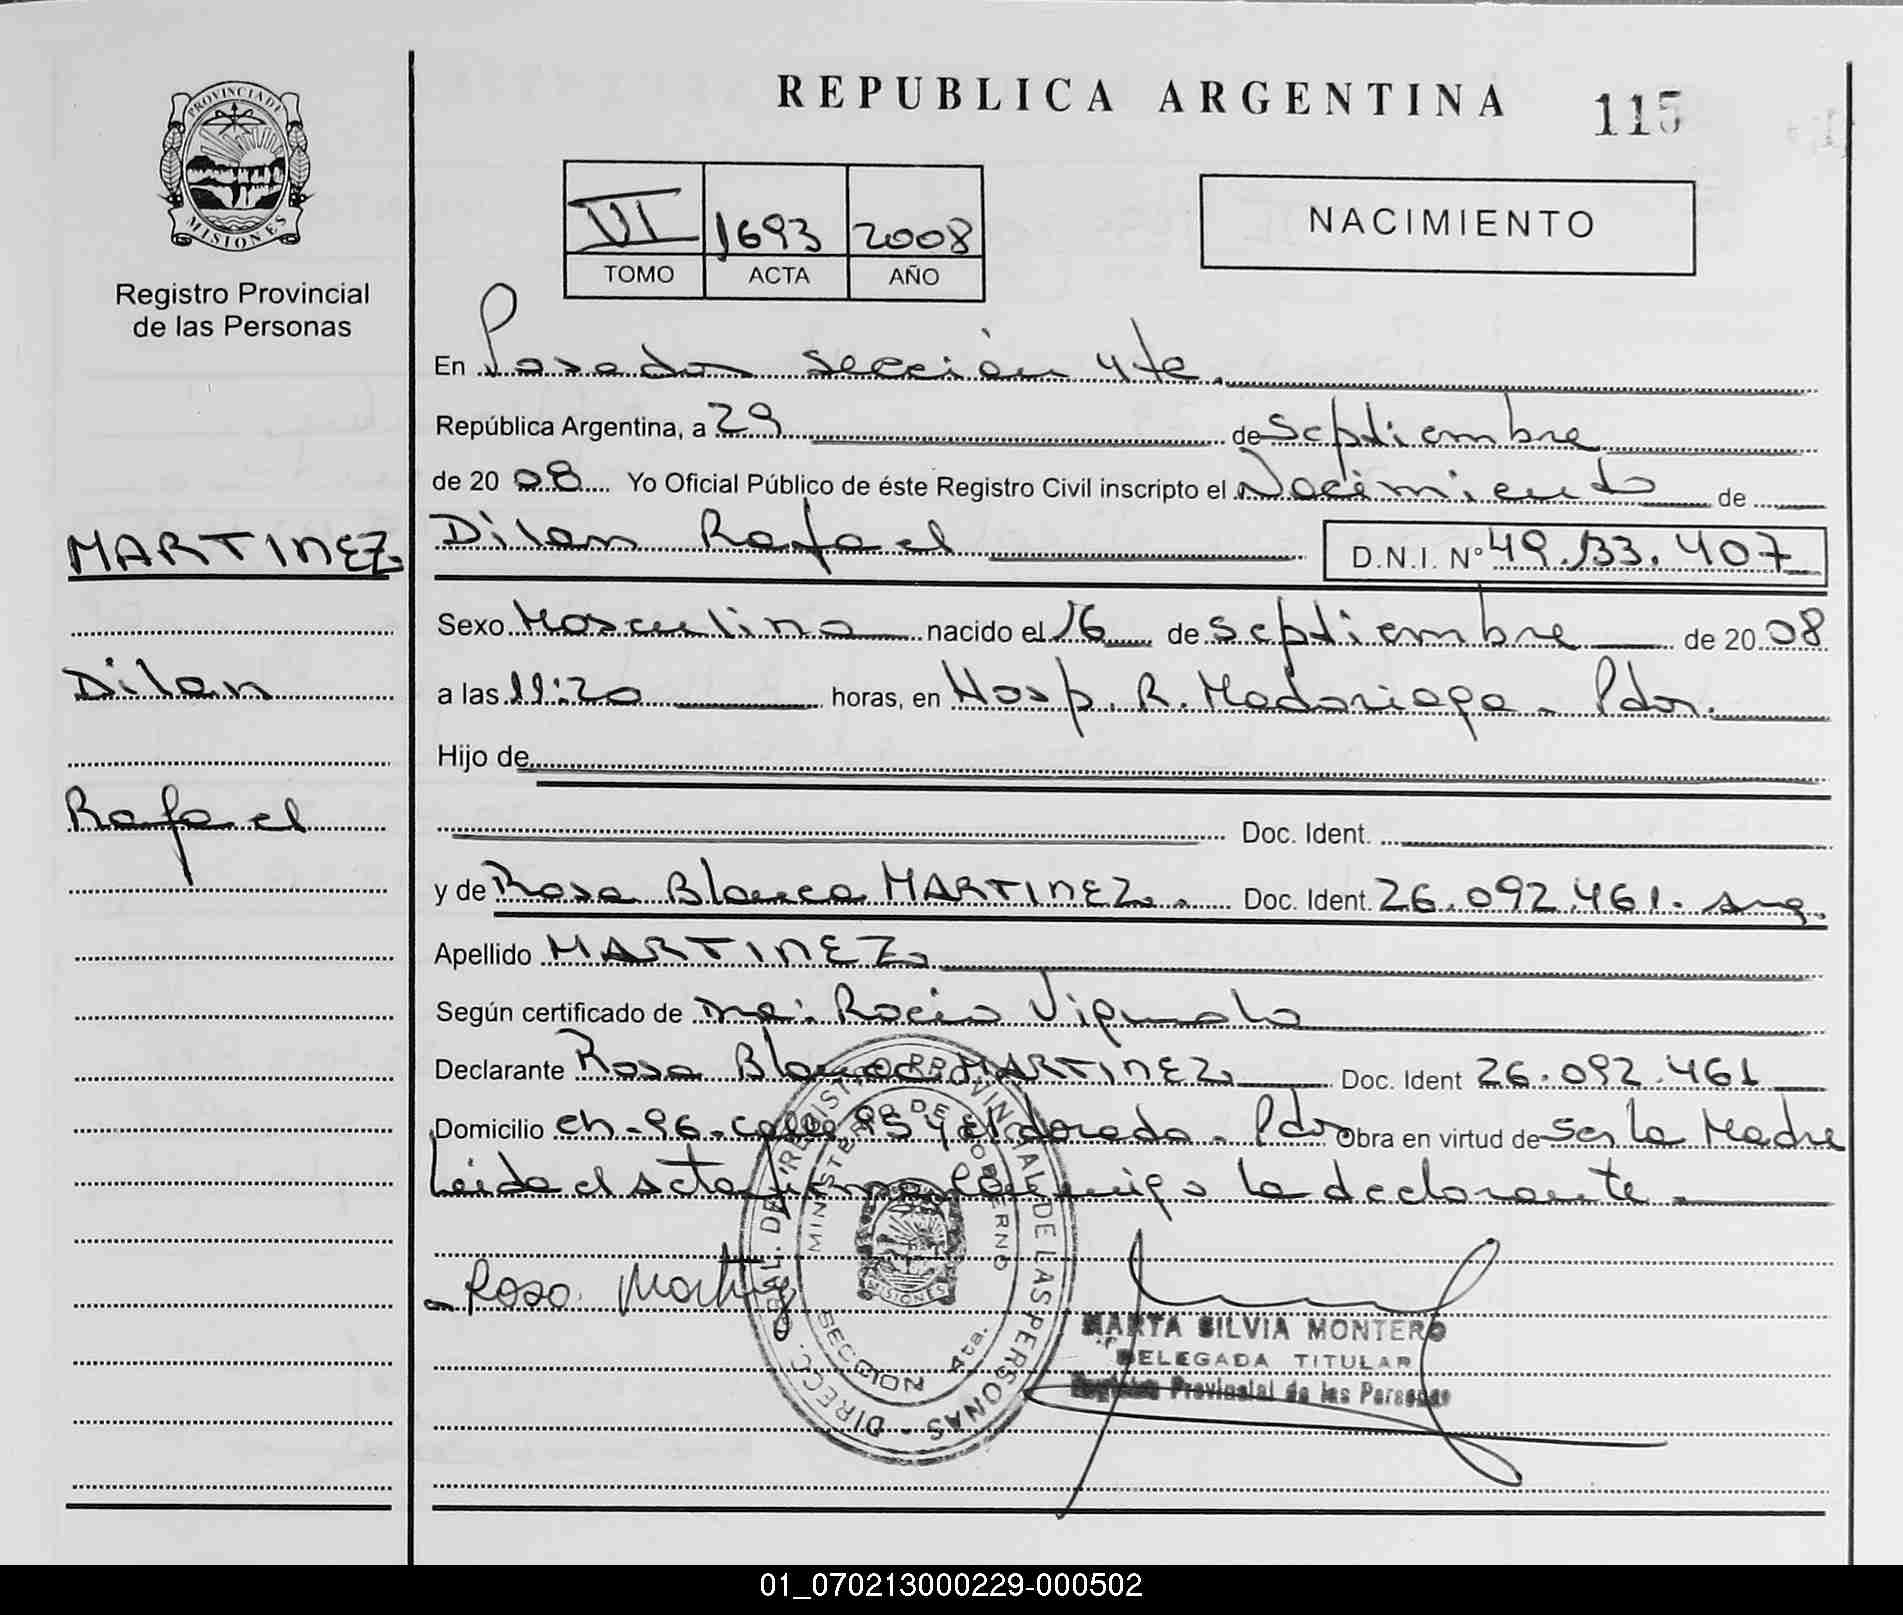 REPUBLICA ARGENTINA
115
PROVINCIA DE
MISIONES
Registro Provincial
de las Personas
VI 1693 2008
TOMO ACTA AÑO
NACIMIENTO
En Posadas sección 4ta.
República Argentina, a 29 de Septiembre
de 2008 Yo Oficial Público de éste Registro Civil inscripto el Nacimiento de
MARTINEZ
Dilan Rafael D.N.I. Nº 49.133.407
Sexo Masculino nacido el 16 de septiembre de 2008
Dilan
a las 11:20 horas, en Hosp. R. Madariaga - Pdas.
Hijo de
Rafael
Doc. Ident.
y de Rosa Blanca MARTINEZ. Doc. Ident. 26.092.461. Arg.
Apellido MARTINEZ
Según certificado de Rocío
Declarante Rosa Blanca MARTINEZ Doc. Ident 26.092.461
Domicilio ch-96-calle El dorado - Pdas Obra en virtud de ser la Madre
Leida el acta firma conmigo la declarante
Rosa Martinez
DIRECC. GRAL. DEL REGISTRO PROVINCIAL DE LAS PERSONAS
MINISTERIO DE GOBIERNO
MISIONES
SECCION 4ta.
MARTA SILVIA MONTERO
DELEGADA TITULAR
Registro Provincial de las Personas
01_070213000229-000502